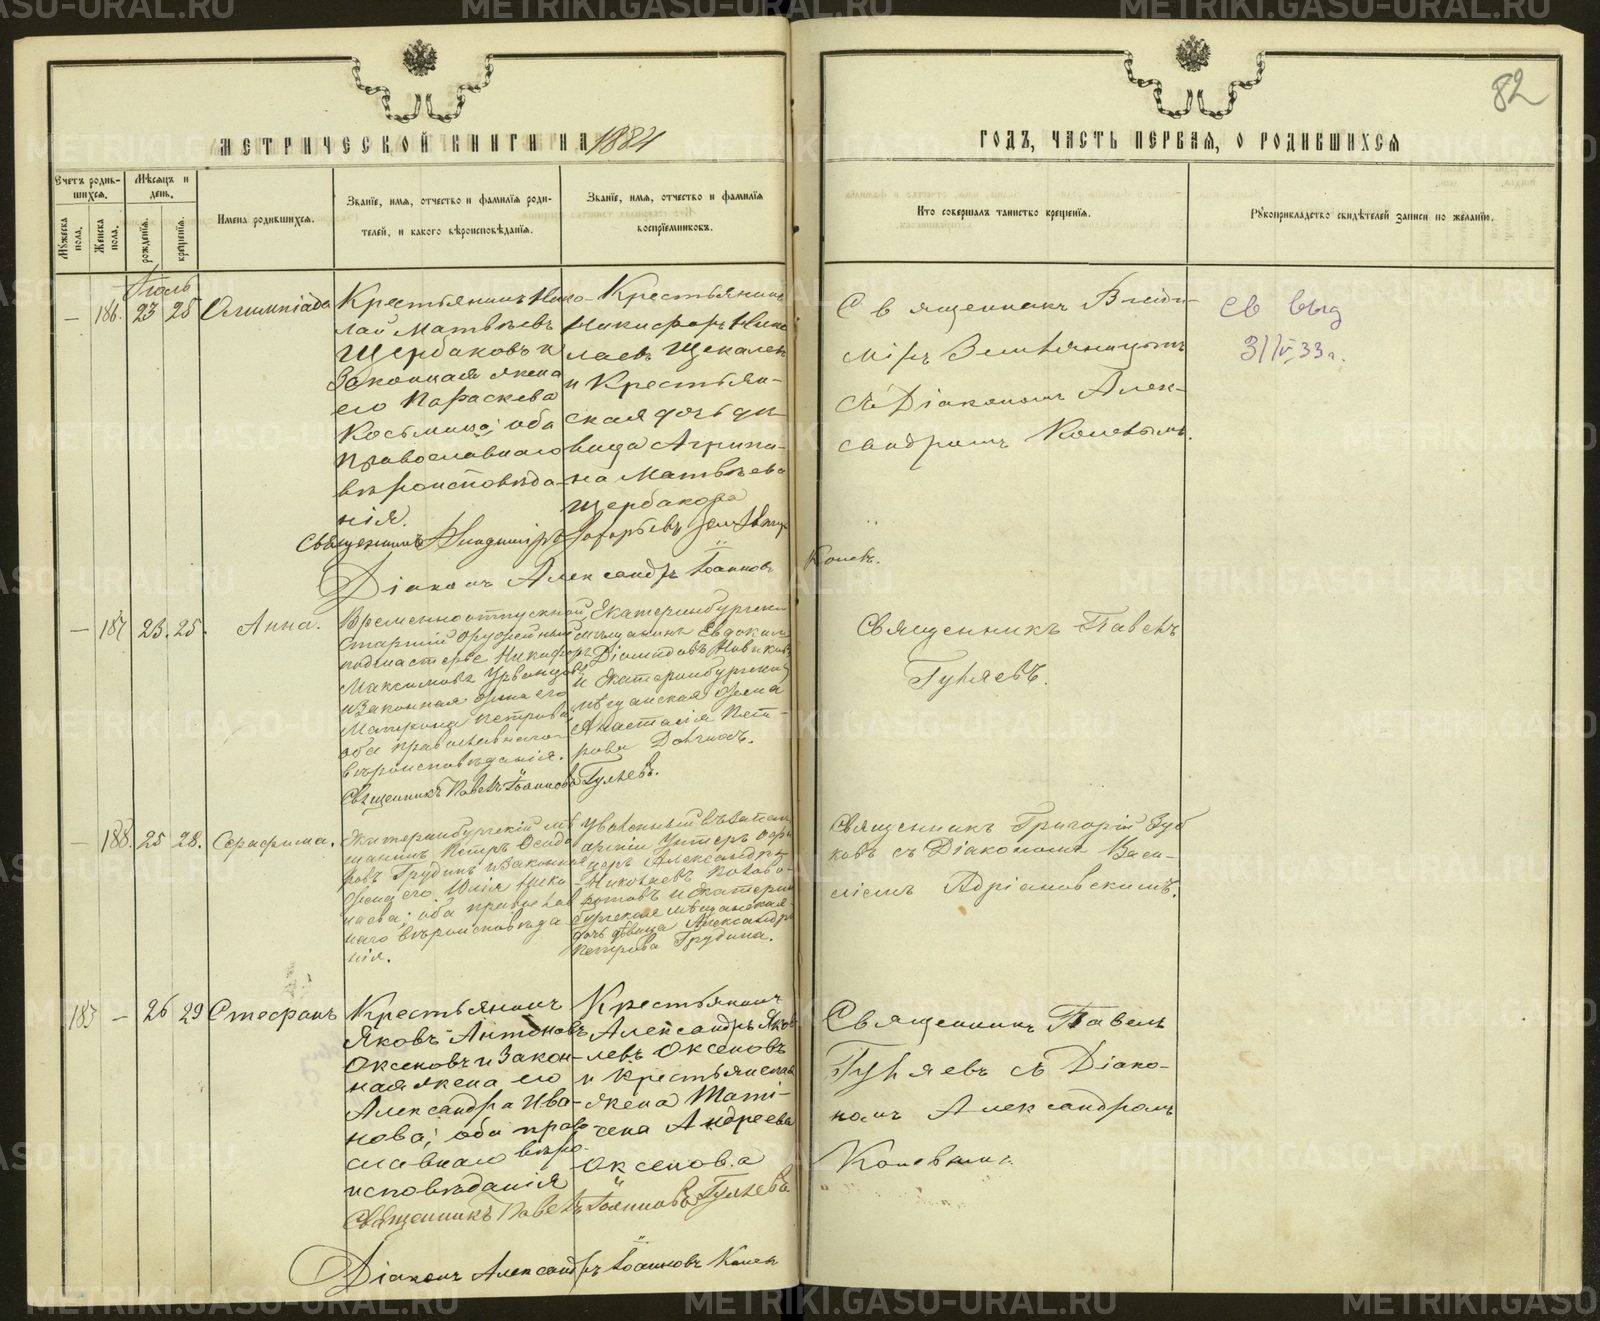 82
МЕТРИЧЕСКОЙ КНИГИ НА 1884
ГОДЪ, ЧАСТЬ ПЕРВАЯ, О РОДИВШИХСЯ
Счетъ родив-
шихся.
Мѣсяцъ и
день.
Мужеска пола.
Женска пола.
рожденія.
крещенія.
Имена родившихся.
Званіе, имя, отчество и фамилія роди-
телей, и какого вѣроисповѣданія.
Званіе, имя, отчество и фамилія
воспріемниковъ.
Кто совершалъ таинство крещенія.
Рукоприкладство свидѣтелей записи по желанію.
Іюль
— 186. 23 25 Олимпіада
Крестьянинъ Нико-
лай Матвѣевъ
Щербаковъ и
Законная жена
его Параскева
Косьмина; оба
православнаго
вѣроисповѣда-
нія.
Крестьянинъ
Никифоръ Нико
лаевъ
и Крестьян-
ская дочь дѣ-
вица Агрипи-
на Матвѣева
Щербакова
Священникъ Влади-
міръ Земляницынъ
съ Діакономъ Алек-
сандромъ Коневымъ.
св выд
3/IV 33 г.
Священникъ Владиміръ
Діаконъ Александръ Іоанновъ Коневъ.
— 187 23. 25. Анна.
Временноотпускной
старшій оружейный
подмастерье Никифоръ
Максимовъ
и Законная жена его
Матрона Петрова
оба православнаго
вѣроисповѣданія.
Екатеринбургскій
мѣщанинъ Евдокимъ
Діомидовъ Новиковъ
и Екатеринбургская
мѣщанская жена
Анастасія Пет-
рова
Священникъ Павелъ
Гуляевъ.
Священникъ Павелъ Іоанновъ Гуляевъ.
— 188. 25 28. Серафима.
Екатеринбургскій мѣ
щанинъ Петръ
Грудинъ и Законная
жена его Юлія Нико
лаева; оба православ
наго вѣроисповѣда
нія.
Уволенный въ запасъ
арміи Унтеръ Офи
церъ Александръ
Николаевъ
и Екатерин
бургская мѣщанская
дочь дѣвица Александра
Петрова Грудина.
Священникъ Григорій Зуб
ковъ съ Діакономъ Васи-
ліемъ Адріановскимъ.
183 — 26 29 Стефанъ
Крестьянинъ
Яковъ Антоновъ
Оксеновъ и Закон-
ная жена его
Александра Ива-
нова; оба право
славнаго вѣро-
исповѣданія
Крестьянинъ
Александръ Яков
левъ Оксеновъ
и Крестьянская
жена Мат-
рена Андреева
Оксенова
Священникъ Павелъ
Гуляевъ съ Діако-
номъ Александромъ
Коневымъ.
Священникъ Павелъ Іоанновъ Гуляевъ
Діаконъ Александръ Іоанновъ Коневъ
METRIKI.GASO-URAL.RU